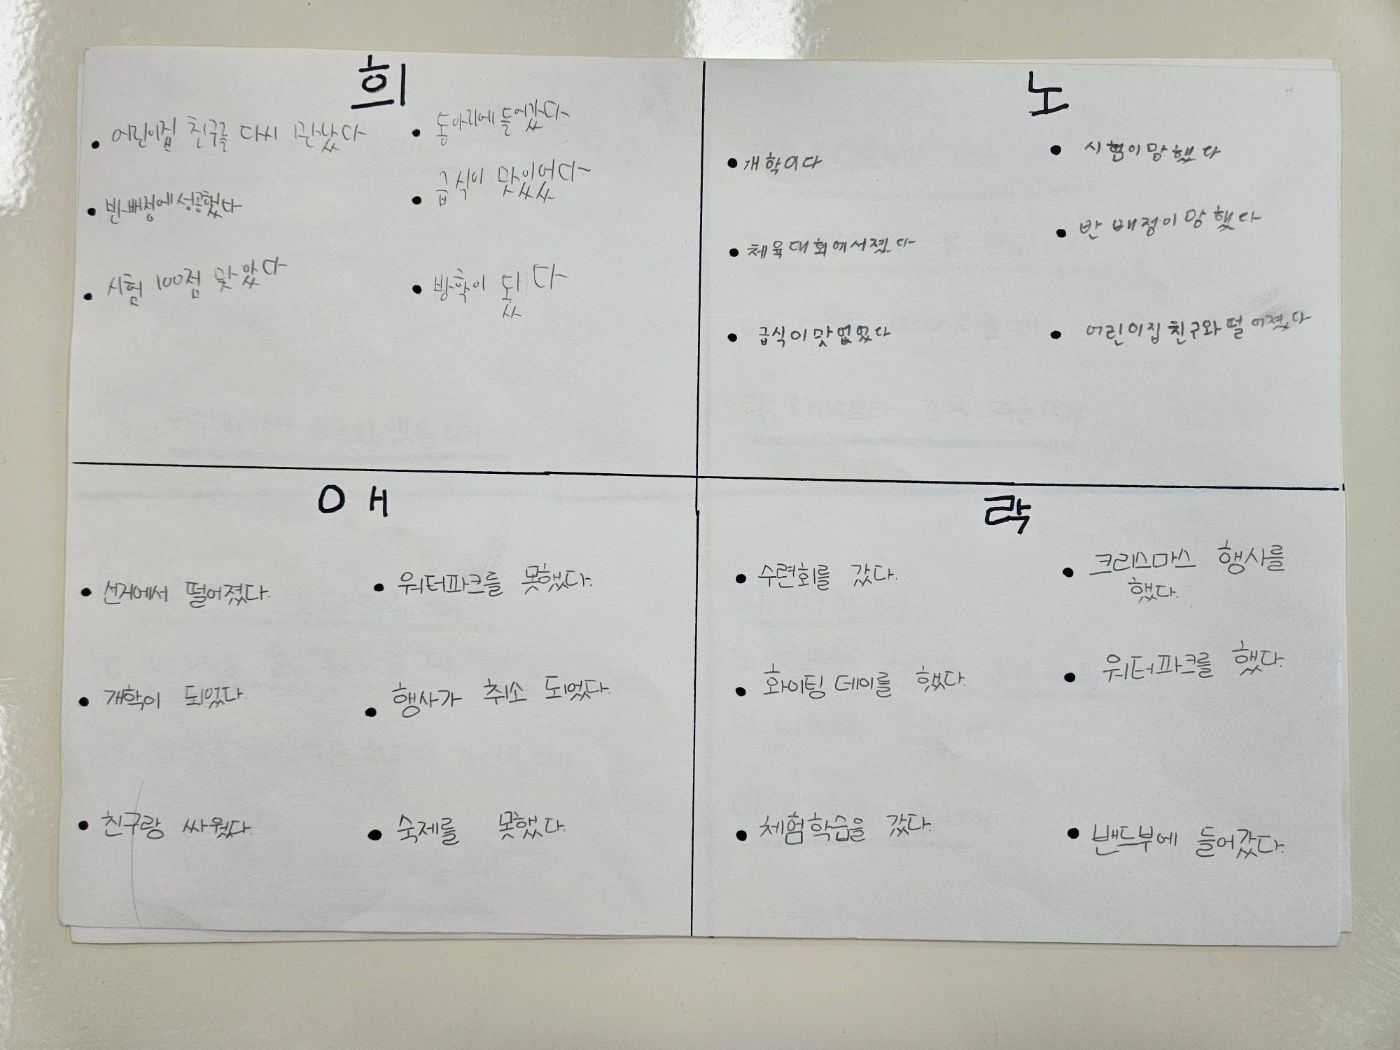 희
어린이집 친구를 다시 만났다
반배정에 성공했다
시험 100점 맞았다
동아리에 들어갔다
급식이 맛있었다
방학이 됬다
노
개학이다
체육대회에서 졌다
급식이 맛없었다
시험이 망했다
반 배정이 망했다
어린이집 친구와 떨어졌다
애
선거에서 떨어졌다.
개학이 되었다.
친구랑 싸웠다.
워터파크를 못했다.
행사가 취소 되었다.
숙제를 못했다.
락
수련회를 갔다.
화이팅 데이를 했다.
체험학습을 갔다.
크리스마스 행사를
했다.
워터파크를 했다.
밴드부에 들어갔다.